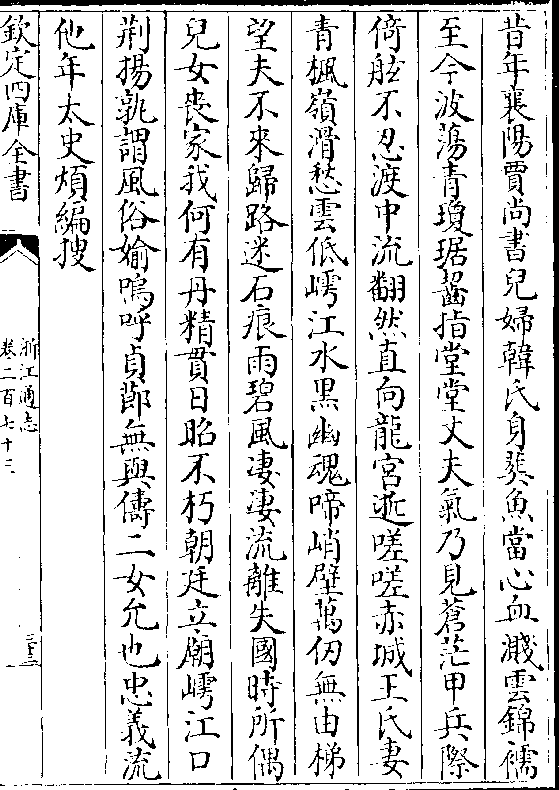 昔年襄陽賈尚書兒婦韓氏身葬魚當心血濺雲錦襦
至今波蕩青瓊琚齧指堂堂丈夫氣乃見蒼茫甲兵際
倚舷不忍渡中流翻然直向龍宮逝嗟嗟赤城王氏妻
青楓嶺滑愁雲低嶀江水黒幽魂啼峭壁萬仞無由梯
望夫不來歸路迷石痕雨碧風淒淒流離失國時所偶
兒女喪家我何有丹精貫日昭不朽朝廷立廟嶀江口
荆揚孰謂風俗媮嗚呼貞節無與儔二女允也忠義流
他年太史煩編搜
欽定四庫全書
浙江通志
卷二百七十三
三十三